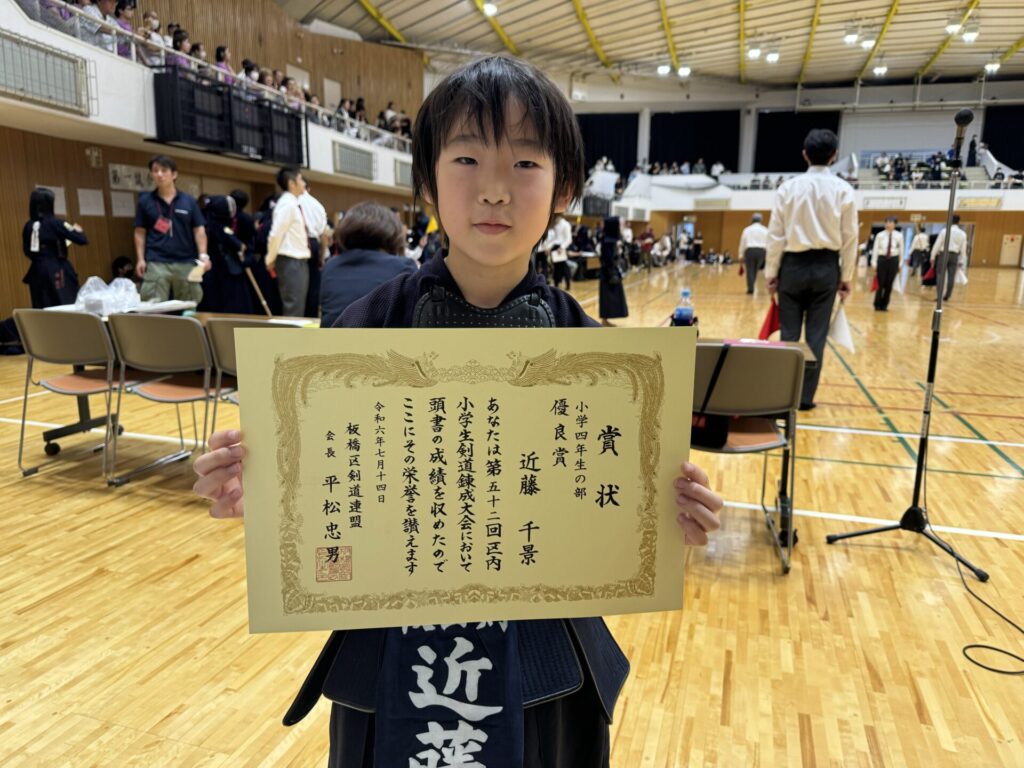 賞状
小学四年生の部
優良賞
近藤 千景
あなたは第五十二回区内
小学生剣道錬成大会において
頭書の成績を収めたので
ここにその栄誉を讃えます
令和六年七月十四日
板橋区剣道連盟
会長 平松忠男
近藤